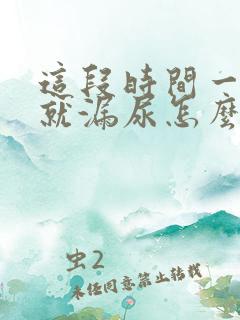 這段時間一
就漏尿怎麼
虫2
未经同意禁止转载